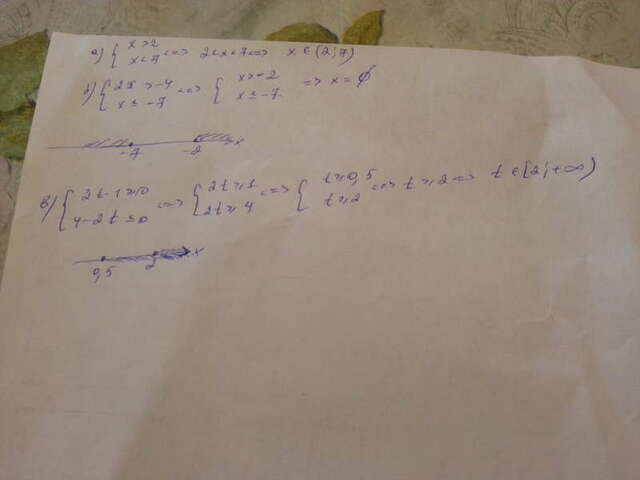 а) { x > 2 x < 7 <=> 2 < x < 7 <=> x ∈ (2; 7)
б) { 2x > -4 x ≤ -7 <=> { x > -2 x ≤ -7 => x = ∅
-7 -2 x
в) { 2t - 1 ≥ 0 4 - 2t ≤ 0 <=> { 2t ≥ 1 2t ≥ 4 <=> { t ≥ 0,5 t ≥ 2 <=> t ≥ 2 <=> t ∈ [2; +∞)
0,5 2 x